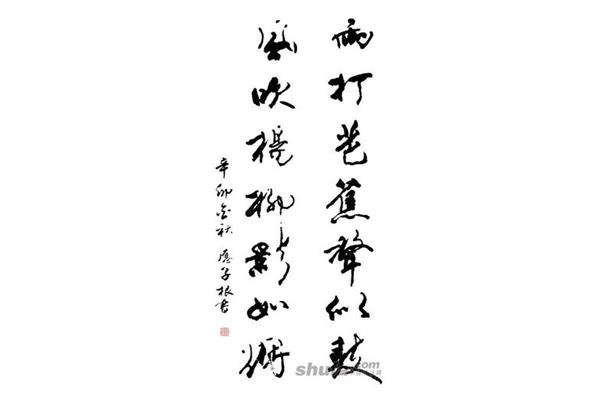 雨打芭蕉聲似鼓
風吹楊柳影如
辛卯金秋 子根书